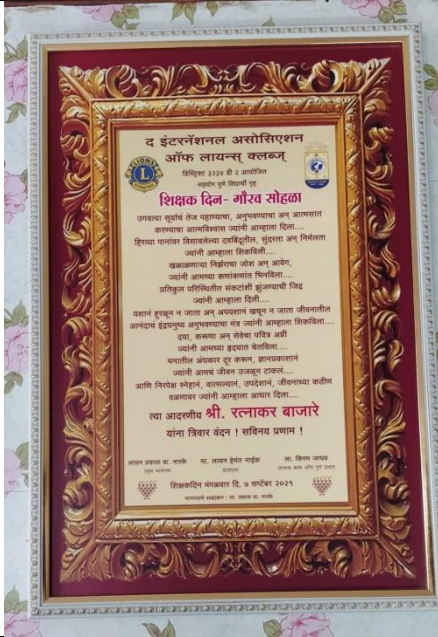 द इंटरनॅशनल असोसिएशन
ऑफ लायन्स् क्लब्ज्
डिस्ट्रिक्ट ३२३४ डी २ आयोजित
सहयोग पुणे विद्यार्थी गृह
शिक्षक दिन- गौरव सोहळा
उगवत्या सूर्याचं तेज पहाण्याचा, अनुभवण्याचा अन् आत्मसात
करण्याचा आत्मविश्वास ज्यांनी आम्हाला दिला....
हिरव्या पानांवर विसावलेल्या दवबिंदूतील, सुंदरता अन् निर्मलता
ज्यांनी आम्हाला शिकविली....
खळाळणाऱ्या निर्झराचा जोश अन् आवेग,
ज्यांनी आमच्या कणाकणांत भिनविला....
प्रतिकुल परिस्थितीत संकटांशी झुंजण्याची जिद्द
ज्यांनी आम्हाला दिली....
यशानं हुरळून न जाता अन् अपयशानं खचून न जाता जीवनातील
आनंदाचं इंद्रधनुष्य अनुभवण्याचा मंत्र ज्यांनी आम्हाला शिकविला....
दया, करूणा अन् सेवेचा पवित्र अग्नी
ज्यांनी आमच्या हृदयात चेतविला....
मनातील अंधकार दूर करून, ज्ञानप्रकाशानं
ज्यांनी आमचं जीवन उजळून टाकलं....
आणि निरपेक्ष स्नेहानं, वात्सल्यानं, उपदेशानं, जीवनाच्या कठीण
वळणावर ज्यांनी आम्हाला आधार दिला....
त्या आदरणीय श्री. रत्नाकर बाजारे
यांना त्रिवार वंदन ! सविनय प्रणाम !
लायन प्रकाश बा. नारके मा. लायन हेमंत नाईक ला. किरण जाधव
प्रांतपाल
शिक्षकदिन मंगळवार दि. ७ सप्टेंबर २०२१
मानपत्राचे शब्दांकन : ला. प्रकाश बा. नारके
LIONS
L